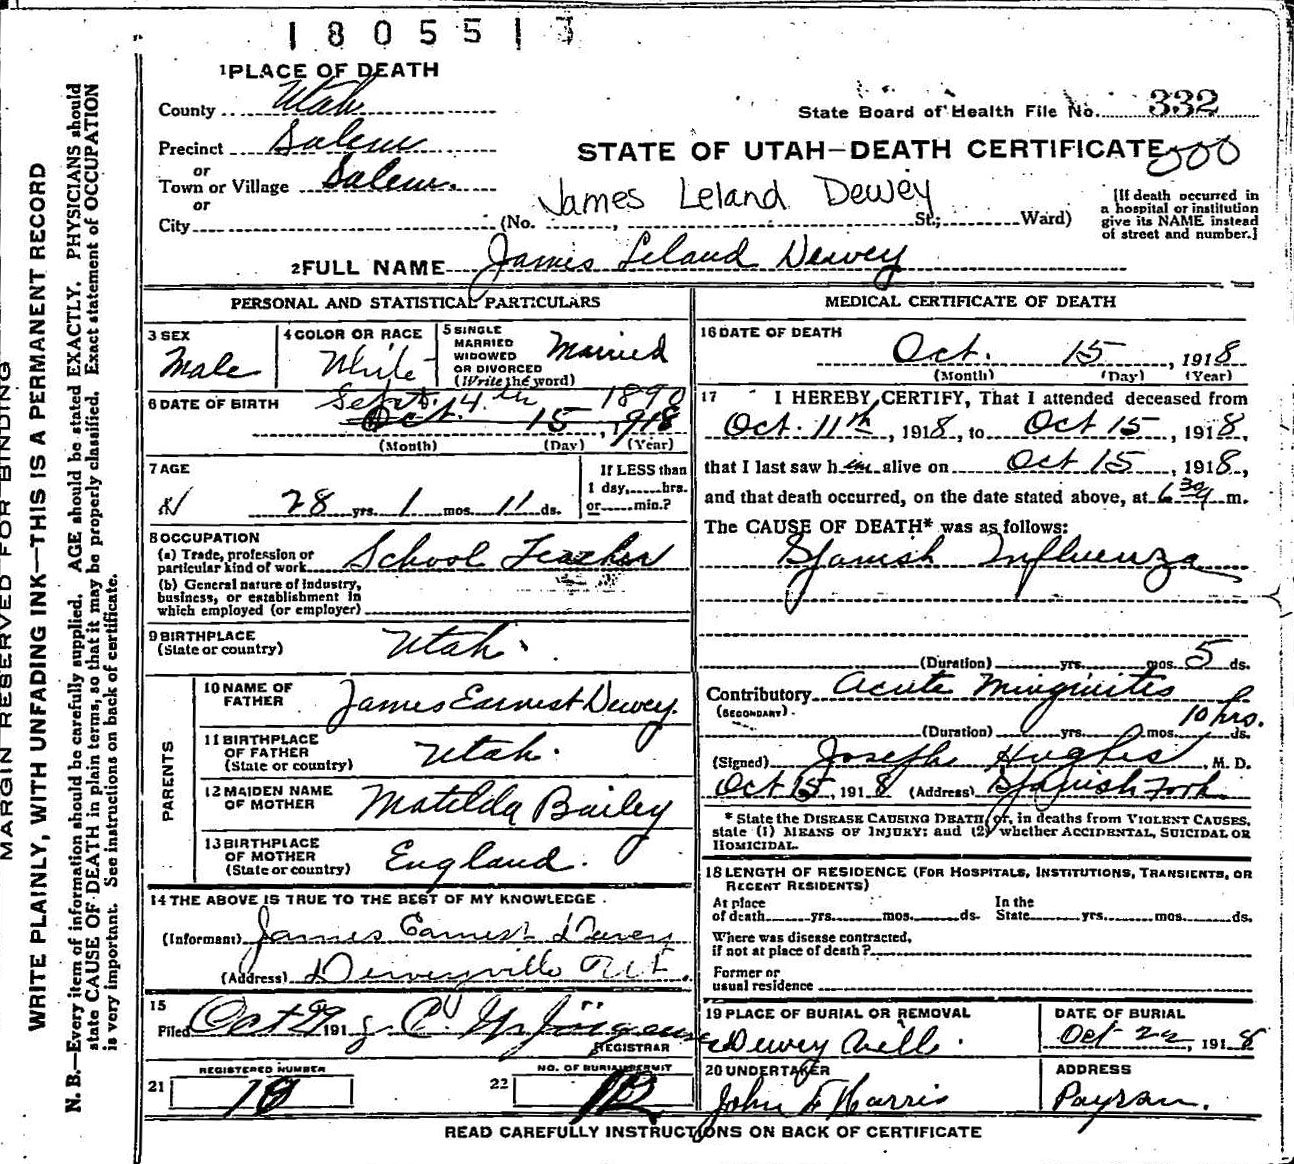 1805517
1PLACE OF DEATH
County Utah
State Board of Health File No. 332
Precinct Salem
STATE OF UTAH—DEATH CERTIFICATE 500
or
Town or Village Salem.
or
James Leland Dewey
City (No. , St; Ward)
[If death occurred in
a hospital or institution
give its NAME instead
of street and number.]
2FULL NAME James Leland Dewey
PERSONAL AND STATISTICAL PARTICULARS
3 SEX
Male
4 COLOR OR RACE
White
5 SINGLE
MARRIED
WIDOWED
OR DIVORCED
(Write the word)
Married
6 DATE OF BIRTH
Sept. 4th 1890
Oct. 15, 1918
(Month) (Day) (Year)
7 AGE
28 yrs. 1 mos. 11 ds.
If LESS than
1 day,......hrs.
or......min.?
8 OCCUPATION
(a) Trade, profession or
particular kind of work School Teacher
(b) General nature of industry,
business, or establishment in
which employed (or employer)
9 BIRTHPLACE
(State or country) Utah.
PARENTS
10 NAME OF
FATHER James Earnest Dewey
11 BIRTHPLACE
OF FATHER
(State or country) Utah.
12 MAIDEN NAME
OF MOTHER Matilda Bailey
13 BIRTHPLACE
OF MOTHER
(State or country) England.
14 THE ABOVE IS TRUE TO THE BEST OF MY KNOWLEDGE.
(Informant) James Earnest Dewey
(Address) Deweyville Ut.
15
Filed Oct 191
REGISTRAR
21 REGISTERED NUMBER
22 NO. OF BURIAL PERMIT
MEDICAL CERTIFICATE OF DEATH
16 DATE OF DEATH
Oct. 15, 1918
(Month) (Day) (Year)
17 I HEREBY CERTIFY, That I attended deceased from
Oct. 11th, 1918, to Oct 15, 1918,
that I last saw him alive on Oct 15, 1918,
and that death occurred, on the date stated above, at 6 30 m.
The CAUSE OF DEATH* was as follows:
Spanish Influenza
(Duration) yrs. mos. 5 ds.
Contributory Acute Minginites
(SECONDARY)
10 hrs.
(Duration) yrs. mos. ds.
(Signed) Joseph Hughes M. D.
Oct 15, 1918 (Address) Spanish Fork
* State the DISEASE CAUSING DEATH, or, in deaths from VIOLENT CAUSES,
state (1) MEANS OF INJURY; and (2) whether ACCIDENTAL, SUICIDAL OR
HOMICIDAL.
18 LENGTH OF RESIDENCE (FOR HOSPITALS, INSTITUTIONS, TRANSIENTS, OR
RECENT RESIDENTS)
At place
of death......yrs......mos......ds.
In the
State......yrs......mos......ds.
Where was disease contracted,
if not at place of death?
Former or
usual residence
19 PLACE OF BURIAL OR REMOVAL
Deweyville.
DATE OF BURIAL
Oct 22, 1918
20 UNDERTAKER
John F Harris
ADDRESS
Payson.
READ CAREFULLY INSTRUCTIONS ON BACK OF CERTIFICATE
MARGIN RESERVED FOR BINDING
WRITE PLAINLY, WITH UNFADING INK—THIS IS A PERMANENT RECORD
N. B.—Every item of information should be carefully supplied. AGE should be stated EXACTLY. PHYSICIANS should
state CAUSE OF DEATH in plain terms, so that it may be properly classified. Exact statement of OCCUPATION
is very important. See instructions on back of certificate.